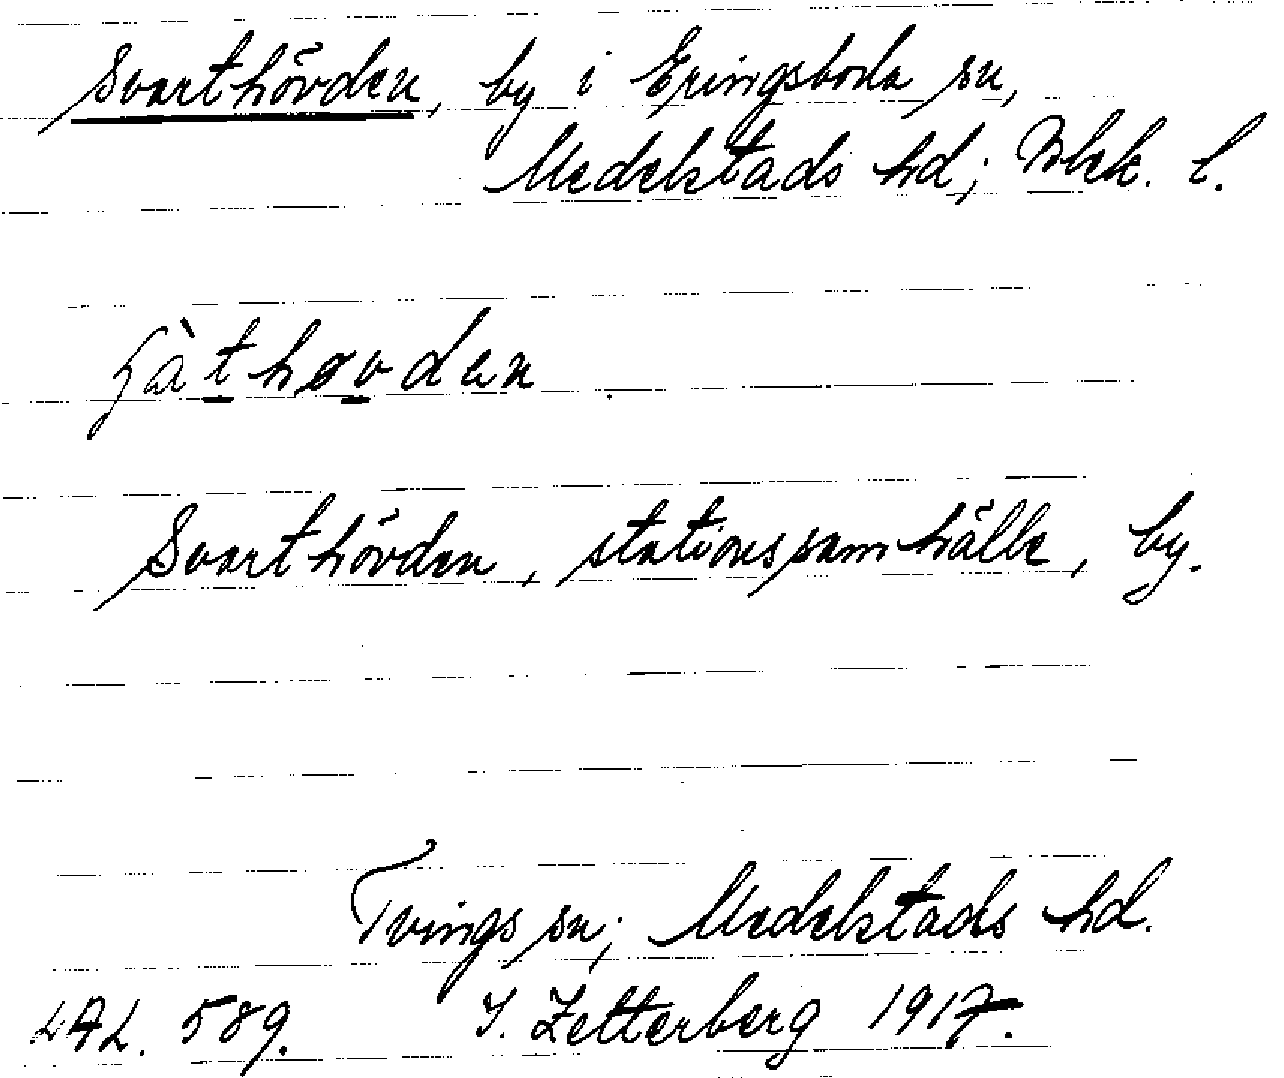 Svarthövden, by i Eringsboda sn,
Medelstads hd; Blek. l.
Svarthövden, stationssamhälle, by.
Tvings sn; Medelstads hd.
LAL. 589. I. Zetterberg 1917.